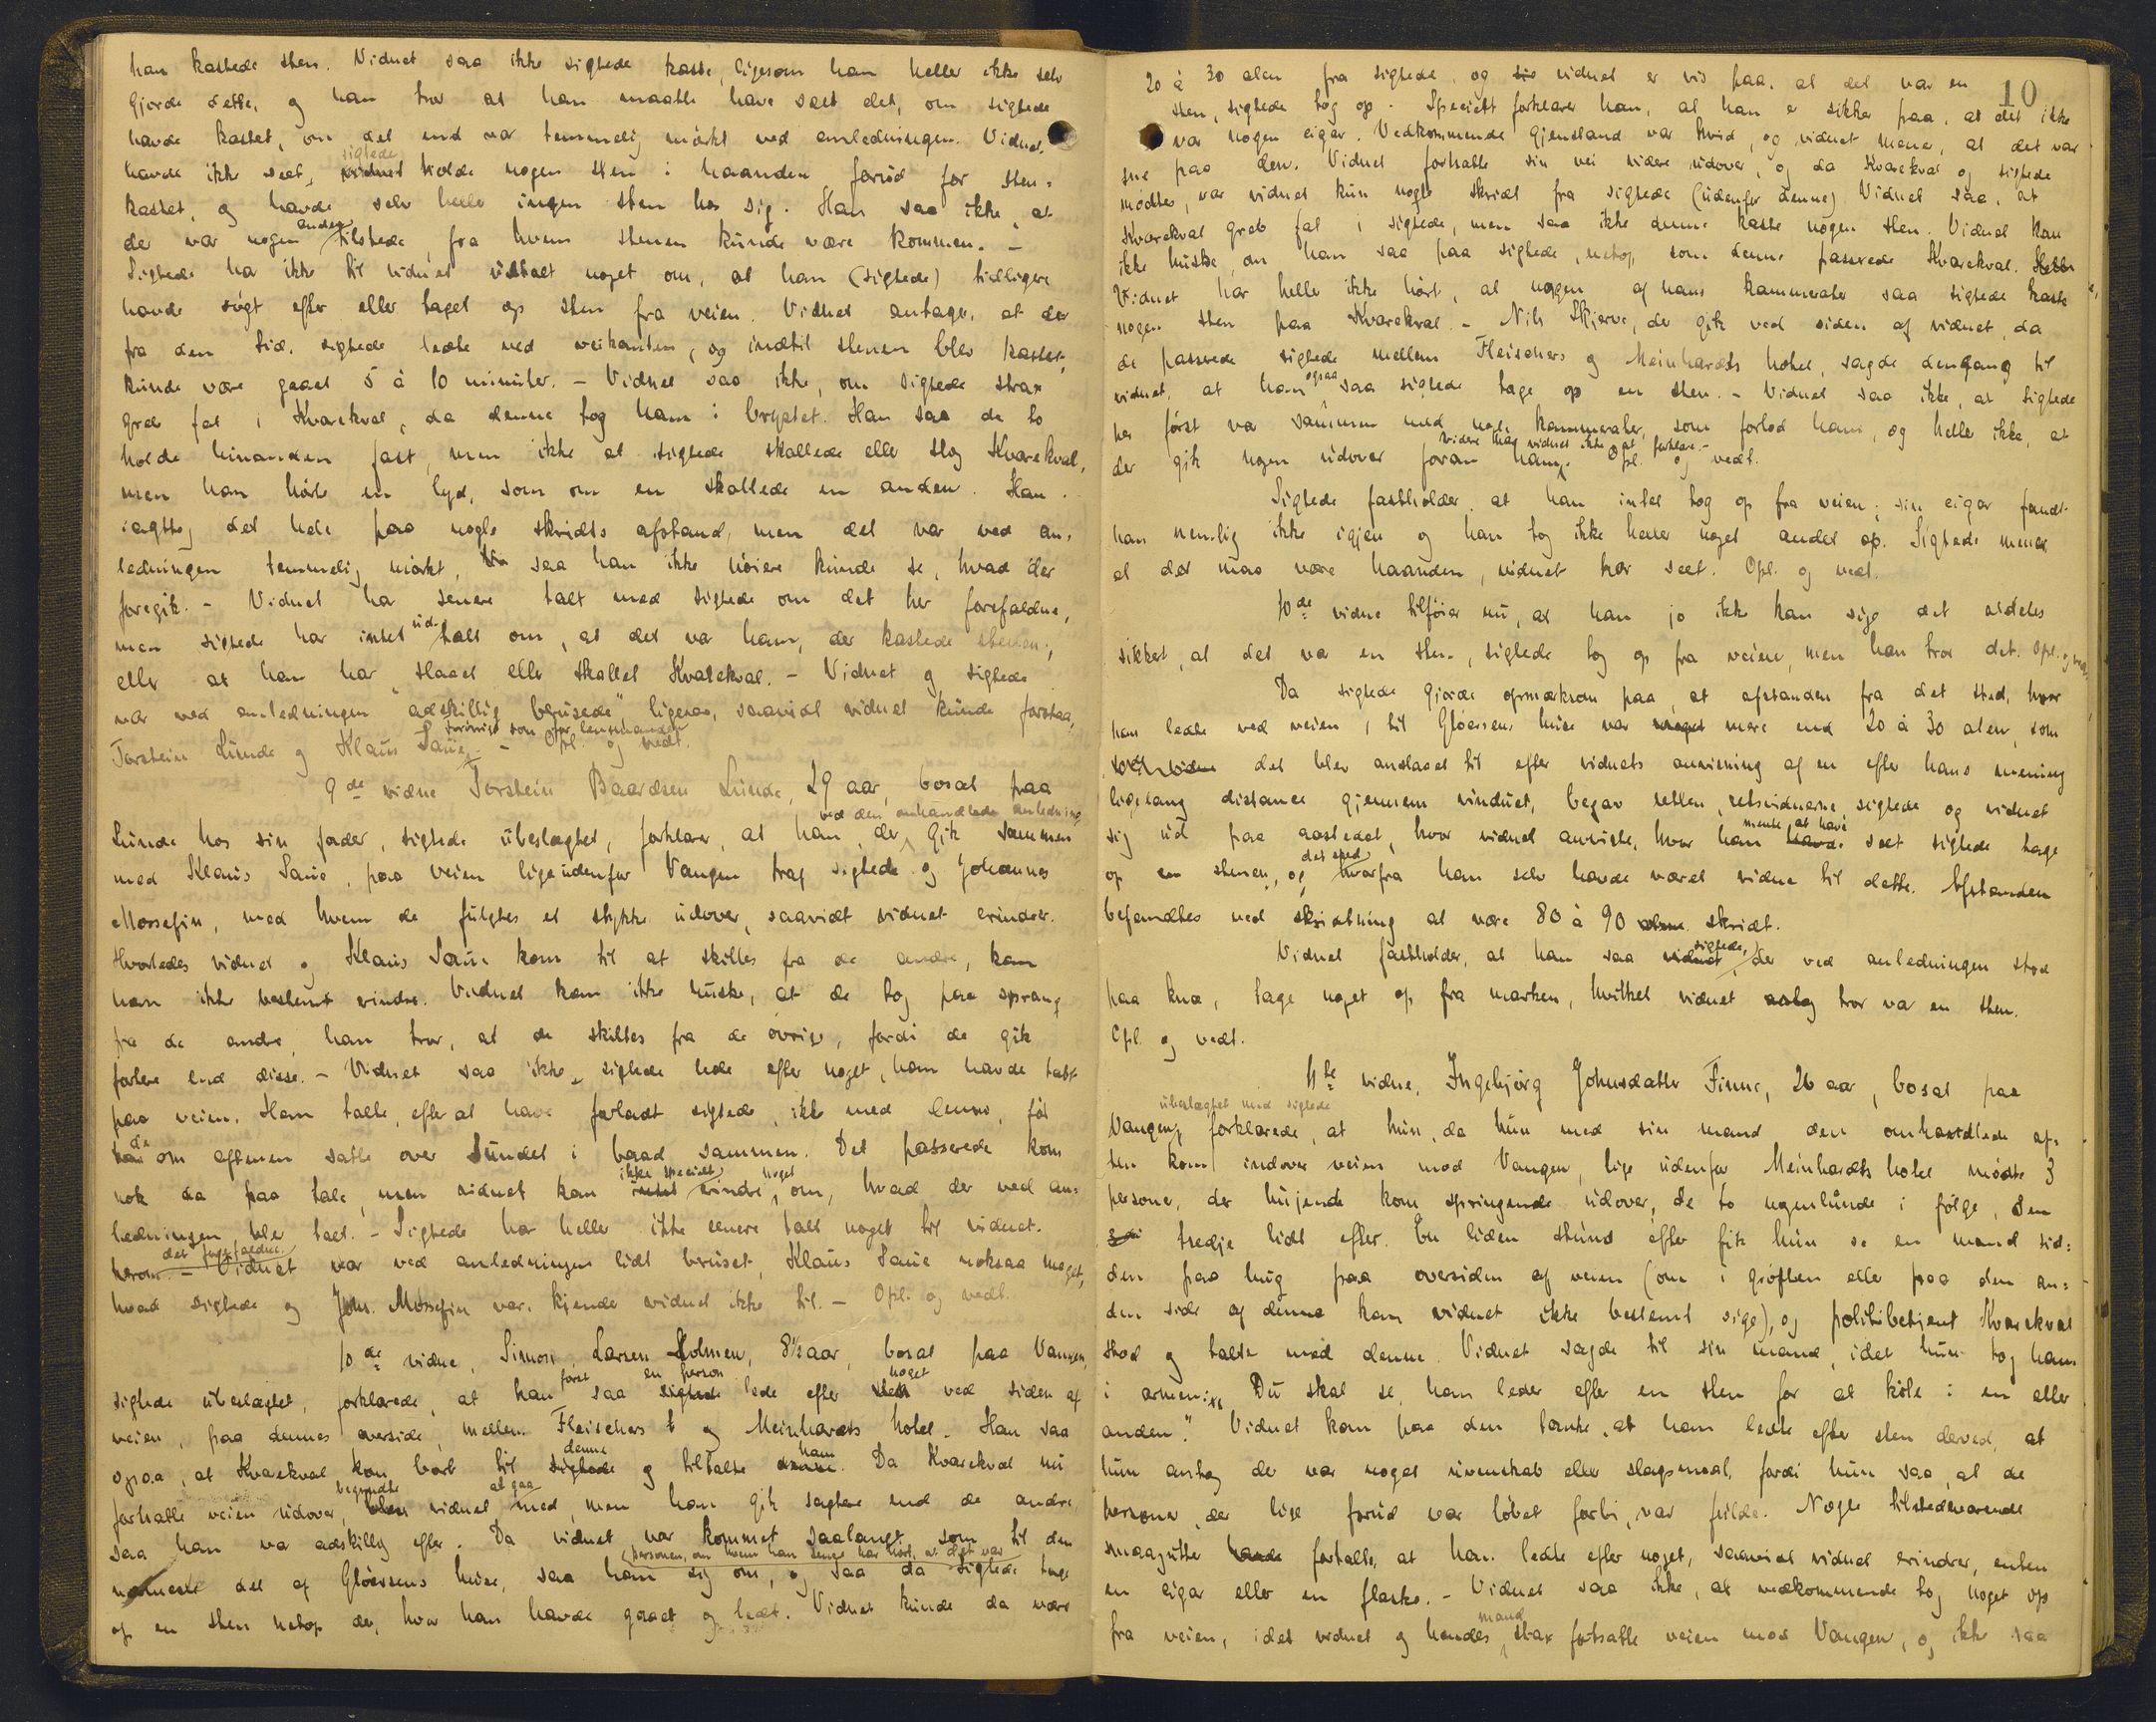 han kastede sten. Vidnet saa ikke sigtede kaste, ligesom han heller ikke selv
gjorde dette, og han tror at han maatte have seet det, om sigtede
havde kastet, om det end var temmelig mørkt ved anledningen. Vidnet
havde ikke seet sigtede holde nogen sten i haanden forud for sten-
kastet, og havde selv heller ingen sten hos sig. Han saa ikke, at
der var nogen anden tilstede, fra hvem stenen kunde være kommen. -
Sigtede har ikke til vidnet udtalt noget om, at han (sigtede) tidligere
havde søgt efter eller taget op sten fra veien. Vidnet antager, at der
fra den tid, sigtede ledte ved veikanten, og indtil stenen blev kastet,
kunde være gaaet 5 à 10 minuter. - Vidnet saa ikke, om sigtede strax
greb fat i Kvarekval, da denne tog ham i brystet. Han saa de to
holde hinanden fast, men ikke at sigtede skallede eller slog Kvarekval,
men han hørte en lyd, som om en skallede en anden. Han
iagttog det hele paa nogle skridts afstand, men det var ved an-
ledningen temmelig mørkt, saa han ikke nøiere kunde se, hvad der
foregik. - Vidnet har senere talt med sigtede om det her forefaldne,
men sigtede har intet udtalt om, at det var ham, der kastede stenen,
eller at han har slaaet eller skallet Kvarekval. - Vidnet og sigtede
var ved anledningen "adskillig berusede" ligesaa, saavidt vidnet kunde forstaa,
Torstein Lunde og Klaus Saue. forøvrigt som for lensmanden - Opl. og vedt.
9de vidne Torstein Baardsen Lunde, 29 aar, bosat paa
Lunde hos sin fader, sigtede ubeslægtet, forklarer, at han, der ved den omhandlede anledning gik sammen
med Klaus Saue, paa veien lige udenfor Vangen traf sigtede og Johannes
Mossefin, med hvem de fulgtes et stykke udover, saavidt vidnet erindrer.
Hvorledes vidnet og Klaus Saue kom til at skilles fra de andre, kan
han ikke bestemt erindre. Vidnet kan ikke huske, at de tog paa sprang
fra de andre, han tror, at de skiltes fra de øvrige, fordi de gik
fortere end disse. - Vidnet saa ikke, sigtede lede efter noget, han havde tabt
paa veien. Han talte, efter at have forladt sigtede, ikke med denne, før
de om aftenen satte over Sundet i baad sammen. Det passerede kom
nok da paa tale, men vidnet kan ikke specielt erindre noget om, hvad der ved an-
ledningen blev talt. - Sigtede har heller ikke senere talt noget til vidnet
det forefaldne. - Vidnet var ved anledningen lidt beruset, Klaus Saue noksaa meget,
hvad sigtede og Johs. Mossefin var, kjender vidnet ikke til. - Opl. og vedt.
10de vidne, Simon Larsen Holmen, 8½ aar, bosat paa Vangen,
sigtede ubeslægtet, forklarede, at han først saa en person lede efter noget ved siden af
veien, paa dennes overside, mellem Fleischers og Meinhardts hotel. Han saa
ogsaa, at Kvarekval kom bort til denne og tiltalte ham. Da Kvarekval nu
fortsatte veien udover, begyndte vidnet at gaa med, men han gik sagtere end de andre
saa han var adskillig efter. Da vidnet var kommet saalangt som til den
nærmeste del af Gløersens huse, saa han sig om, og saa da personen, om hvem han senere har hørt, at det var sigtede tage
op en sten netop der, hvor han havde gaaet og ledt. Vidnet kunde da være
10
20 à 30 alen fra sigtede, og vidnet er vis paa, at det var en
sten, sigtede tog op. Specielt forklarer han, at han er sikker paa, at det ikke
var nogen cigar. Vedkommende gjenstand var hvid, og vidnet mener, at det var
sne paa den. Vidnet fortsatte sin vei videre udover, og da Kvarekval og sigtede
mødtes, var vidnet kun nogle skridt fra sigtede (udenfor denne). Vidnet saa, at
Kvarekval greb fat i sigtede, men saa ikke denne kaste nogen sten. Vidnet kan
ikke huske, om han saa paa sigtede, netop som denne passerede Kvarekval.
Vidnet har heller ikke hørt, at nogen af hans kammerater saa sigtede kaste
nogen sten paa Kvarekval. - Nils Skjerve, der gik ved siden af vidnet, da
de passerede sigtede mellem Fleischers og Meinhardts hotel, sagde dengang til
vidnet, at han ogsaa saa sigtede tage op en sten. - Vidnet saa ikke, at sigtede
her først var sammen med nogle kammerater, som forlod ham, og heller ikke, at
der gik nogen udover foran ham. Videre har vidnet ikke at forklare. - Opl. og vedt.
Sigtede fastholder, at han intet tog op fra veien; sin cigar fandt
han nemlig ikke igjen og han tog ikke heller noget andet op. Sigtede mener
at det maa være haanden, vidnet har seet. Opl. og vedt.
10de vidne tilføier nu, at han jo ikke kan sige det aldeles
sikkert, at det var en sten, sigtede tog op fra veien, men han tror det. Opl. og vedt.
Da sigtede gjorde opmærksom paa, at afstanden fra det sted, hvor
han ledte ved veien, til Gløersens huse var mere end 20 à 30 alen, som
det blev anslaaet til efter vidnets anvisning af en efter hans mening
ligelang distance gjennem vinduet, begav retten, retsvidnerne, sigtede og vidnet
sig ud paa aastedet, hvor vidnet anviste, hvor han mente at have seet sigtede tage
op stenen, og det sted hvorfra han selv havde været vidne til dette. Afstanden
befandtes ved skridtning at være 80 à 90 skridt.
Vidnet fastholder, at han saa sigtede, der ved anledningen stod
paa knæ, tage noget op fra marken, hvilket vidnet tror var en sten.
Opl. og vedt.
11te vidne, Ingebjørg Johnsdatter Finne, 26 aar, bosat paa
Vangen, ubeslægtet med sigtede forklarede, at hun, da hun med sin mand den omhandlede af-
ten kom indover veien mod Vangen, lige udenfor Meinhardts hotel mødte 3
personer, der hujende kom springende udover, de to nogenlunde i følge, den
tredje lidt efter. En liden stund efter fik hun se en mand sid-
den paa hug paa oversiden af veien (om i grøften eller paa den an-
den side af denne kan vidnet ikke bestemt sige), og politibetjent Kvarekval
stod og talte med denne. Vidnet sagde til sin mand, idet hun tog ham
i armen: "Du skal se, han leder efter en sten for at kyle i en eller
anden." Vidnet kom paa den tanke, at han ledte efter sten derved, at
hun antog der var noget uvenskab eller slagsmaal, fordi hun saa, at de
personer, der lige forud var løbet forbi, var fulde. Nogle tilstedeværende
smaagutter fortalte, at han ledte efter noget, saavidt vidnet erindrer, enten
en cigar eller en flaske. - Vidnet saa ikke, at vedkommende tog noget op
fra veien, idet vidnet og hendes mand strax fortsatte veien mod Vangen, og ikke saa